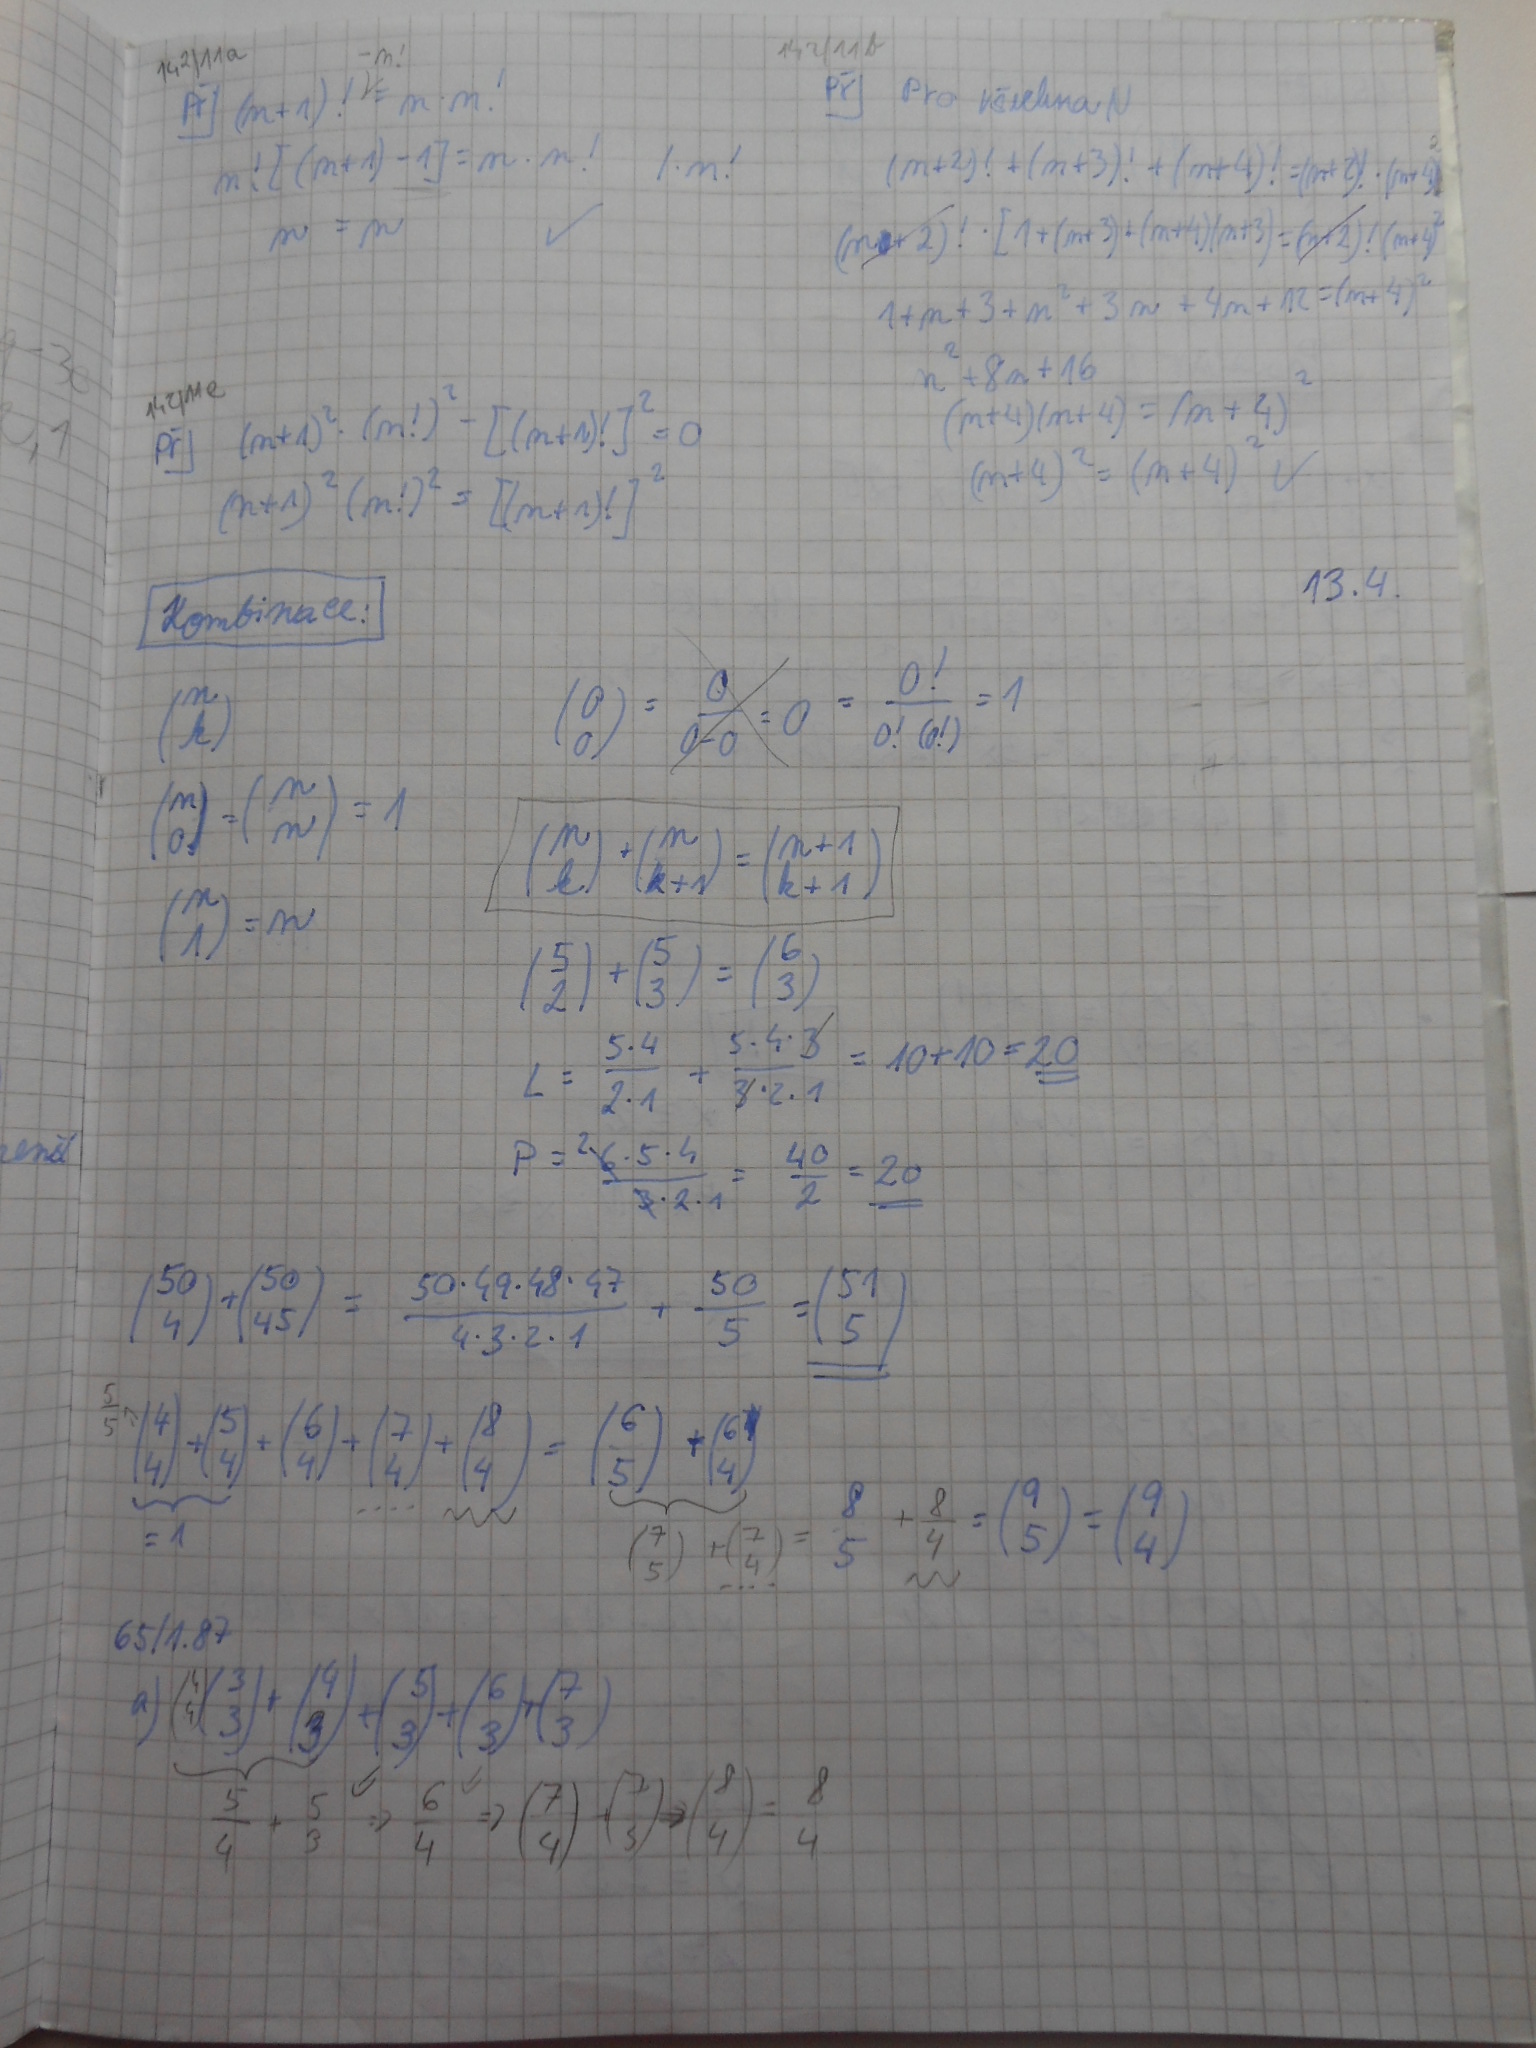 142/11a
-n!
Př] (n+1)! = n·n!
n![(n+1)-1] = n·n! /·n!
n = n ✓
142/11b
Př] Pro všechna N
(n+2)! + (n+3)! + (n+4)! = (n+2)!·(n+4)²
(n+2)!·[1+(n+3)+(n+4)(n+3) = (n+2)!(n+4)²
1+n+3+n²+3n+4n+12 = (n+4)²
n²+8n+16
(n+4)(n+4) = (n+4)²
(n+4)² = (n+4)² ✓
9-30
,1
142/11c
Př] (n+1)²·(n!)² - [(n+1)!]² = 0
(n+1)²(n!)² = [(n+1)!]²
13.4.
Kombinace:
(n k)
(0 0) = 0/0-0 = 0 = 0!/0!(0!) = 1
(n 0) = (n n) = 1
(n k) + (n k+1) = (n+1 k+1)
(n 1) = n
(5 2) + (5 3) = (6 3)
L = 5·4/2·1 + 5·4·3/3·2·1 = 10+10 = 20
P = 2·6·5·4/3·2·1 = 40/2 = 20
(50 4) + (50 45) = 50·49·48·47/4·3·2·1 + 50/5 = (51 5)
5/5 → (4 4) + (5 4) + (6 4) + (7 4) + (8 4) = (6 5) + (6 4)
= 1
(7 5) + (7 4) = 8 5 + 8/4 = (9 5) = (9 4)
65/1.87
a) (4 4) (3 3) + (4 3) + (5 3) + (6 3) + (7 3)
5/4 + 5/3 ⇒ 6/4 ⇒ (7 4) + (7 3) ⇒ (8 4) = 8 4